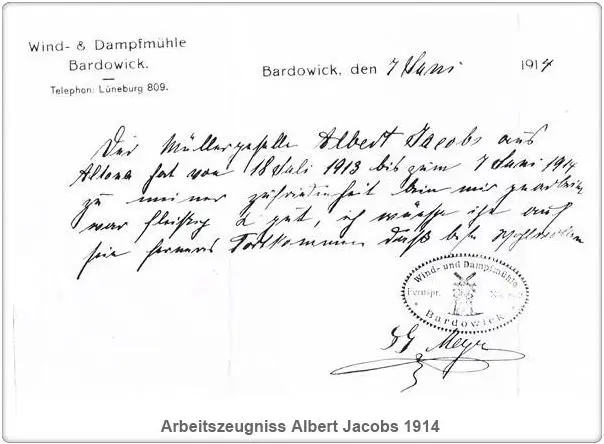 Wind- & Dampfmühle
Bardowick.
Telephon: Lüneburg 809.
Bardowick, den 7 Juni 1914
Der Müllergeselle Albert Jacobs aus
Altona hat von 18 Juli 1913 bis zum 7 Juni 1914
zu meiner zufriedenheit bein mir gearbeitet
war fleissig & gut, ich wünsche ihn auf
sein ferneres Fortkommen das beste
Wind- und Dampfmühle
Fernspr.
Bardowick
Meyer
Arbeitszeugniss Albert Jacobs 1914